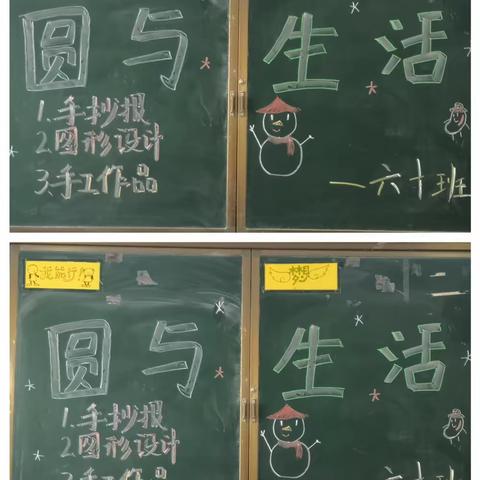 圆与
生活
1.手抄报
2.图形设计
3.手工作品
一六十班
我能行!
梦想
圆与
生活
1.手抄报
2.图形设计
3.手工作品
六十班